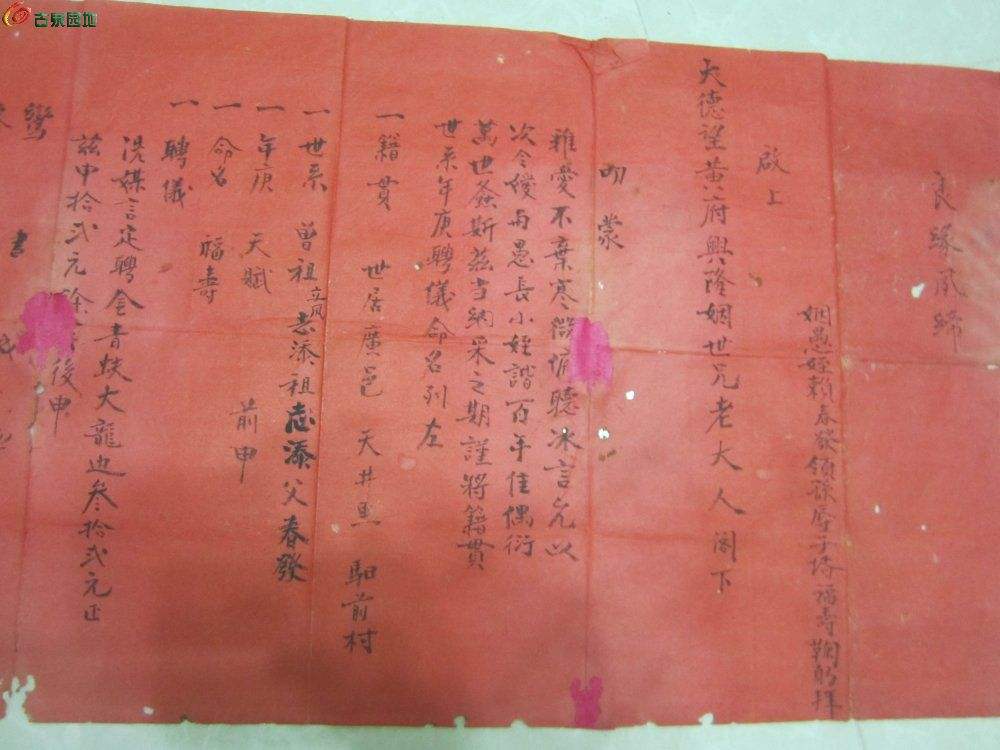 良緣夙締
姻愚姪賴春發領孫辱子壻福壽鞠躬拜
啟上
大德望黃府興隆姻世兄老大人閣下
叨蒙
雅愛不棄寒微俯聽冰言允以
次令嬡與愚長小姪諧百年佳偶衍
萬世螽斯茲当納采之期謹將籍貫
世系年庚聘儀命名列左
一籍貫 世居廣邑 天井 前村
一世系 曾祖立凤 志添祖志添父春發
一年庚 天賦 前申
一命名 福壽
一聘儀
憑媒言定聘金青蚨大龍边叁拾弍元正
茲申拾弍元餘 後申
鸞書
古泉园地